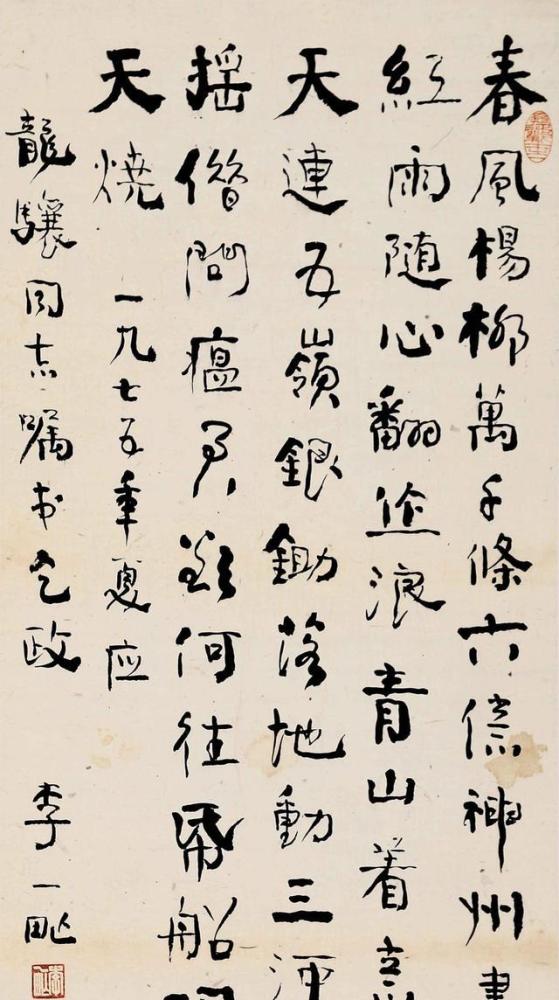 春風楊柳萬千條六億神州盡
紅雨随心翻作浪青山着意
天連五嶺銀鋤落地動三河
摇借問瘟君欲何往帋船明
天燒 一九七五年夏应
龍驤同志嘱书乞政 李一氓